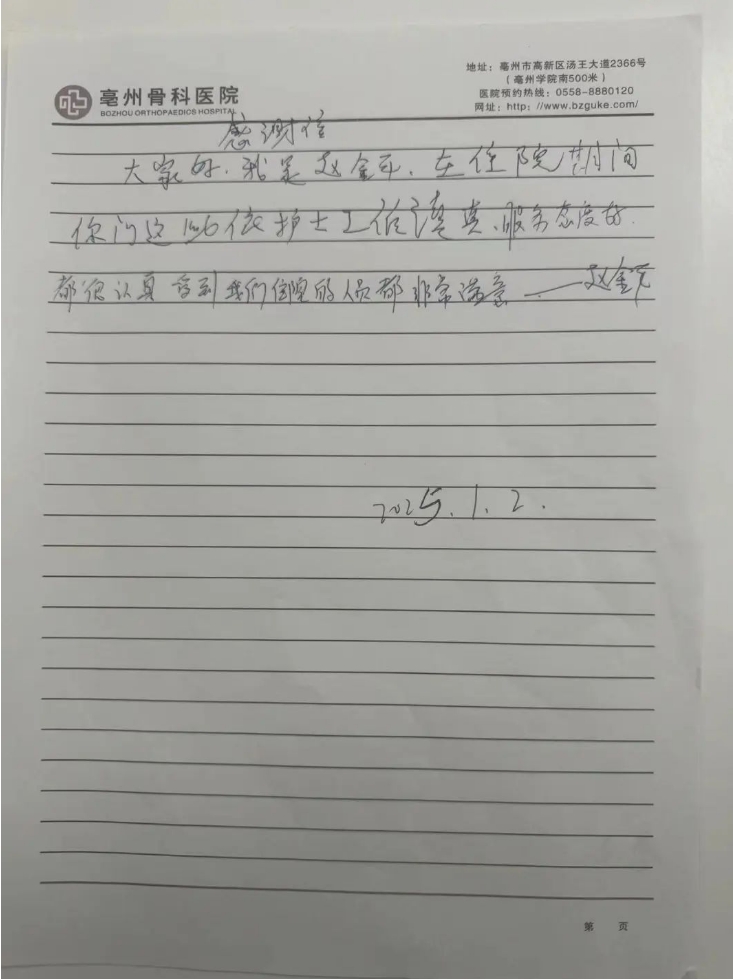 亳州骨科医院
BOZHOU ORTHOPAEDICS HOSPITAL
地址：亳州市高新区汤王大道2366号
（亳州学院南500米）
医院预约热线：0558-8880120
网址：http://www.bzguke.com/
感谢信
大家好.我是赵金.在住院期间
你们这医护士工作认真、服务态度好.
都很认真 我们住院的人员都非常满意——赵金
2025.1.2.
第 页